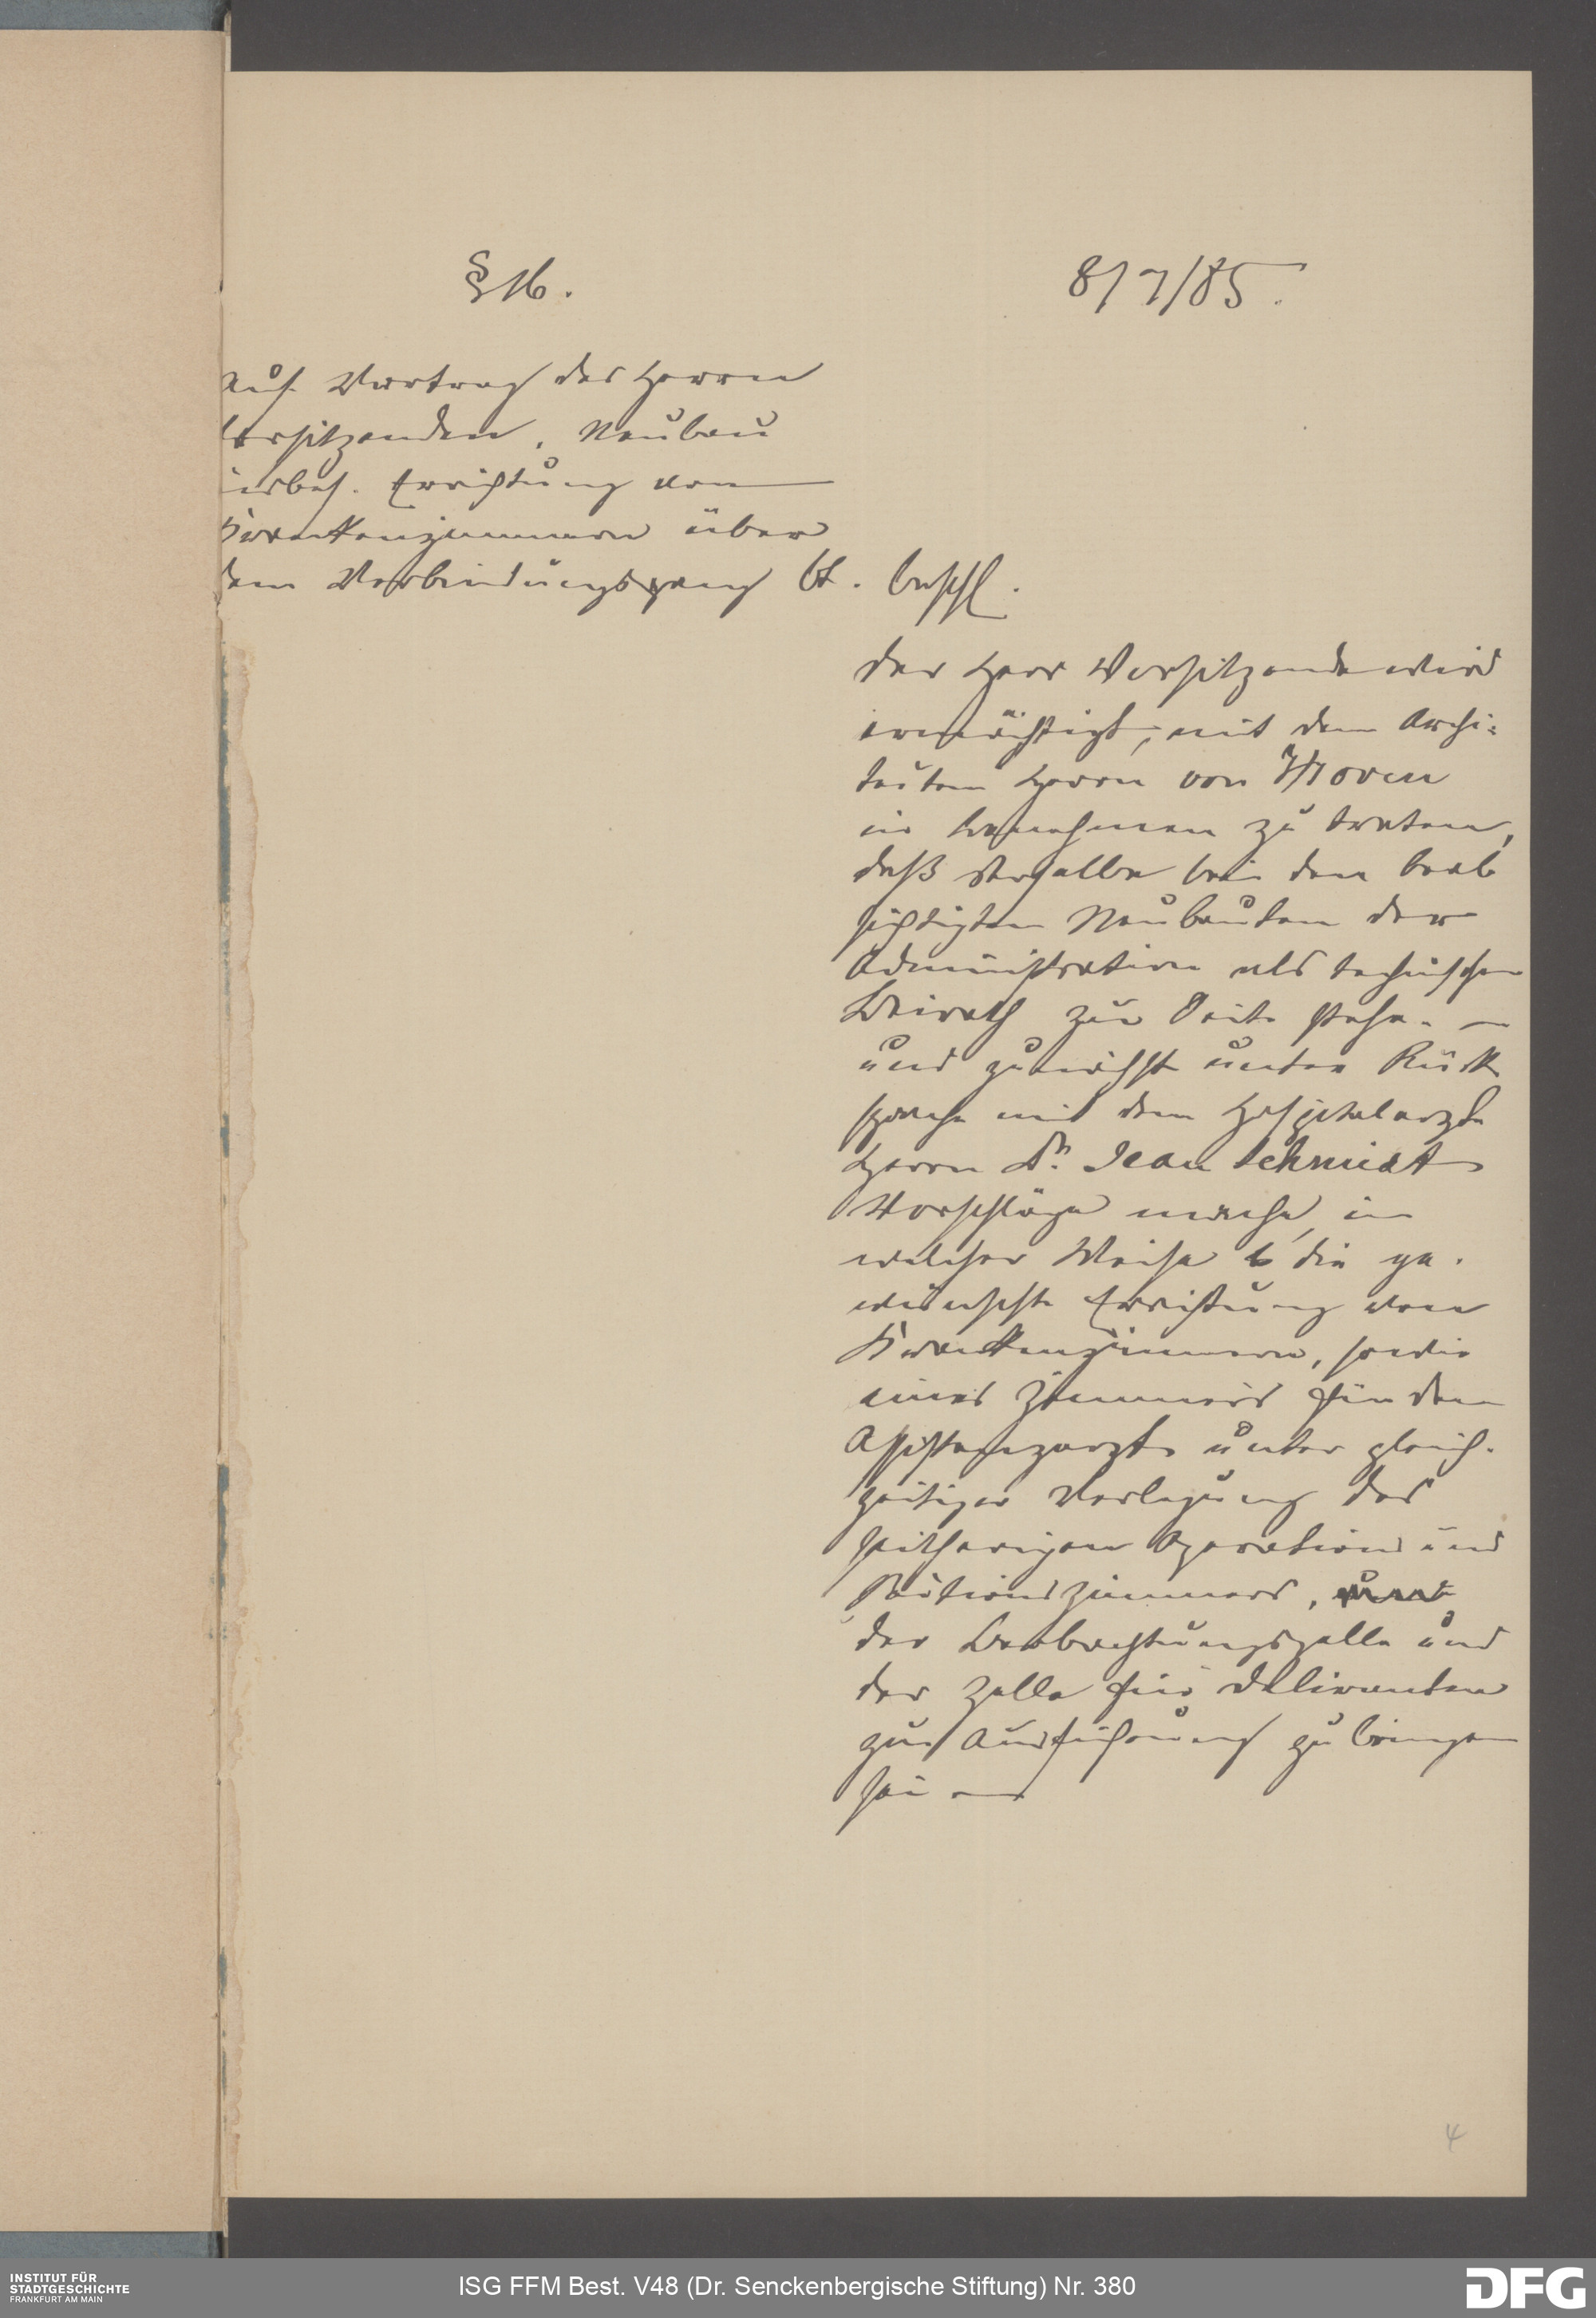 § 16.
8/7/85.
Auf Vortrag des Herrn
Vorsitzenden, Neubau
insbes. Errichtung von
Krankenzimmern über
dem Verbindungsgang bt.
beschl.
Der Herr Vorsitzende wird
ermächtigt, mit dem Archi-
tecten Herrn von Hoven
in Benehmen zu treten,
daß derselbe bei den beab
sichtigten Neubauten der
Administration als technischer
Beirath zur Seite stehe. –
und zunächst unter Rück
sprache mit dem Hospitalarzte
Herrn Dr. Jean Schmidt
Vorschläge mache, in
welcher Weise die ge-
wünschte Errichtung von
Krankenzimmern, sowie
eines Zimmers für den
Assistenzarzt unter gleich-
zeitiger Verlegung des
seitherigen Operations und
Sectionszimmers,
der Beobachtungszelle und
der Zelle für Deliranten
zur Ausführung zu bringen
sei
4
INSTITUT FÜR
STADTGESCHICHTE
FRANKFURT AM MAIN
ISG FFM Best. V48 (Dr. Senckenbergische Stiftung) Nr. 380
DFG